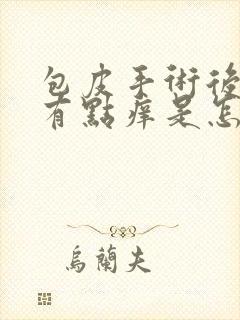 包皮手術後
有點痒是怎
烏蘭夫